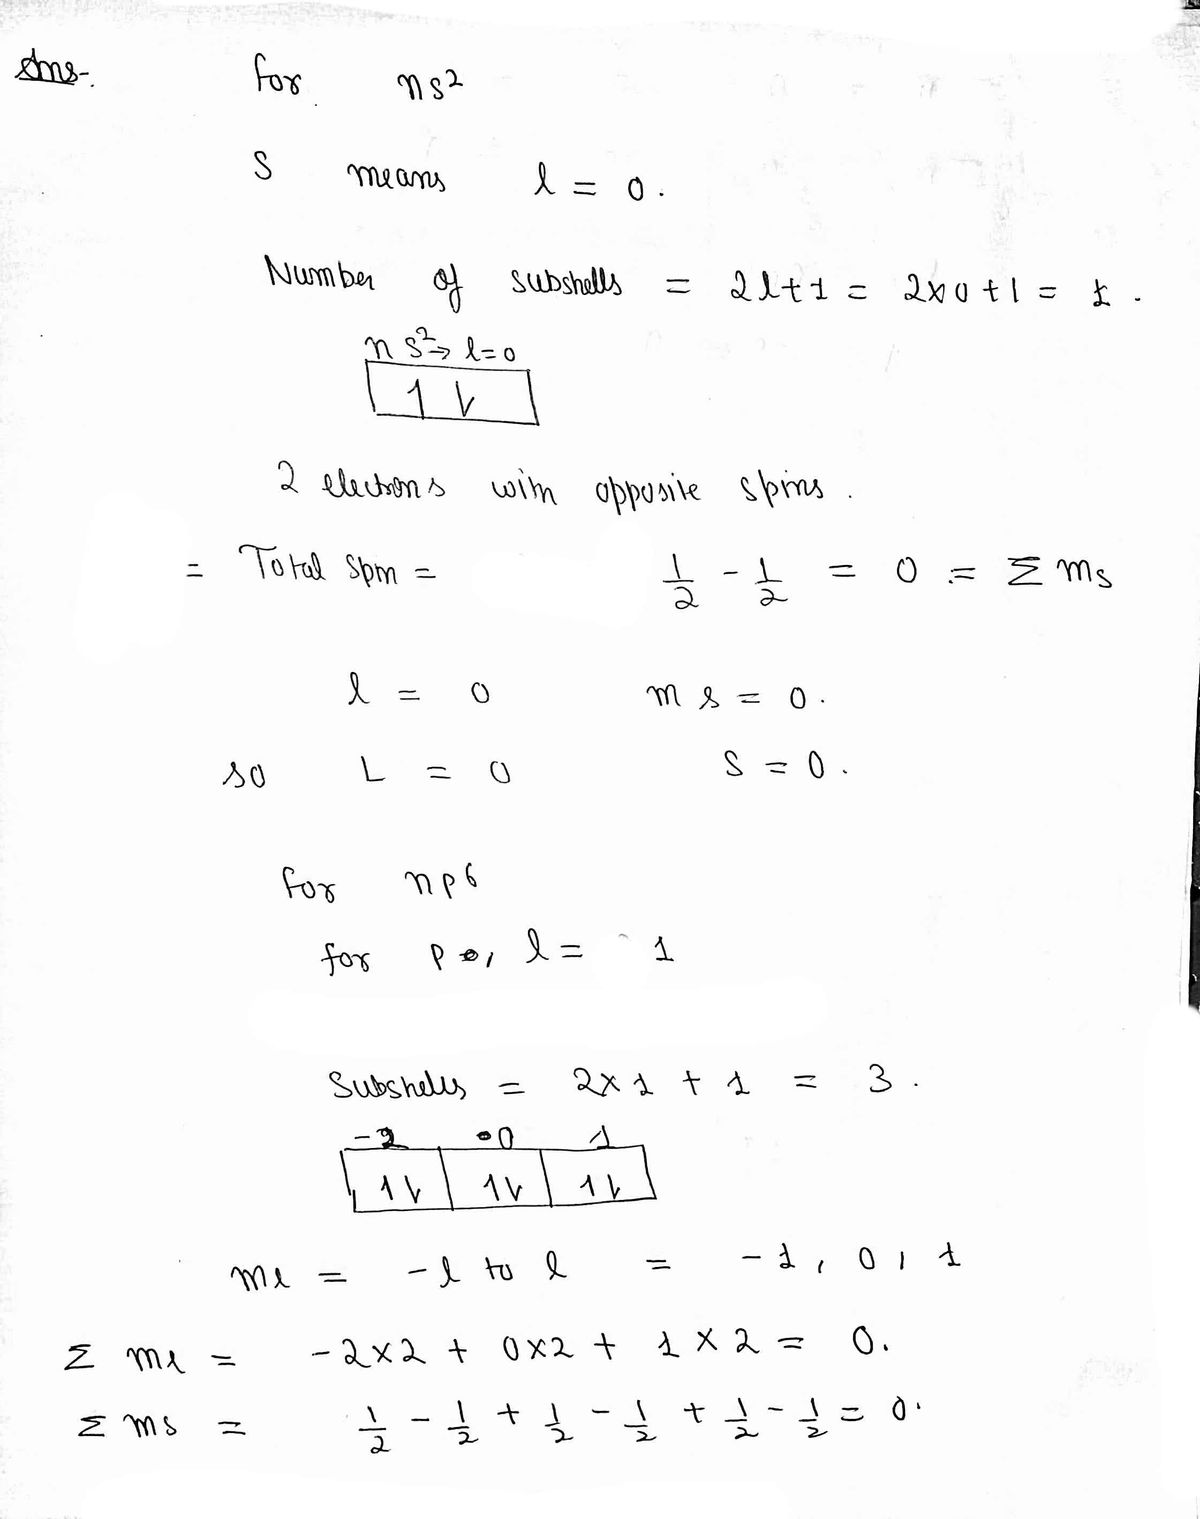 Ans-.
for ns²
S means l = 0.
Number of subshells = 2l+1 = 2x0+1 = 1.
ns² → l=0
1 ↓
2 electrons with opposite spins.
= Total Spin = 1/2 - 1/2 = 0 = Σ ms
l = 0 ms = 0.
so L = 0 S = 0.
for np6
for p, l = 1
Subshells = 2x1 + 1 = 3.
-2 0 1
1↓ 1↓ 1↓
ml = -l to l = -1, 0, 1
Σ ml = -2x2 + 0x2 + 1x2 = 0.
Σ ms = 1/2 - 1/2 + 1/2 - 1/2 + 1/2 - 1/2 = 0.